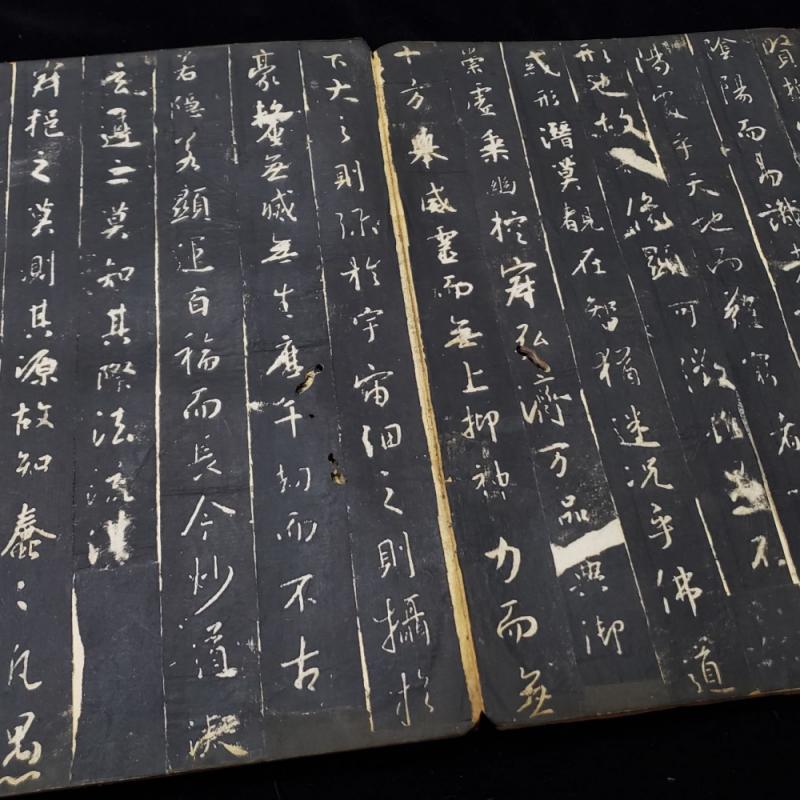 賢
陰陽而易識
陽處乎天地而難窮者
形也故像顯可徵雖愚不
惑形潛莫覩在智猶迷況乎佛道
崇虛乘幽控寂弘濟万品典御
十方舉威靈而無上抑神力而無
下大之則彌於宇宙細之則攝於
豪釐無滅無生歷千劫而不古
若隱若顯運百福而長今妙道凝
玄遵之莫知其際法流湛
寂挹之莫測其源故知蠢〻凡愚